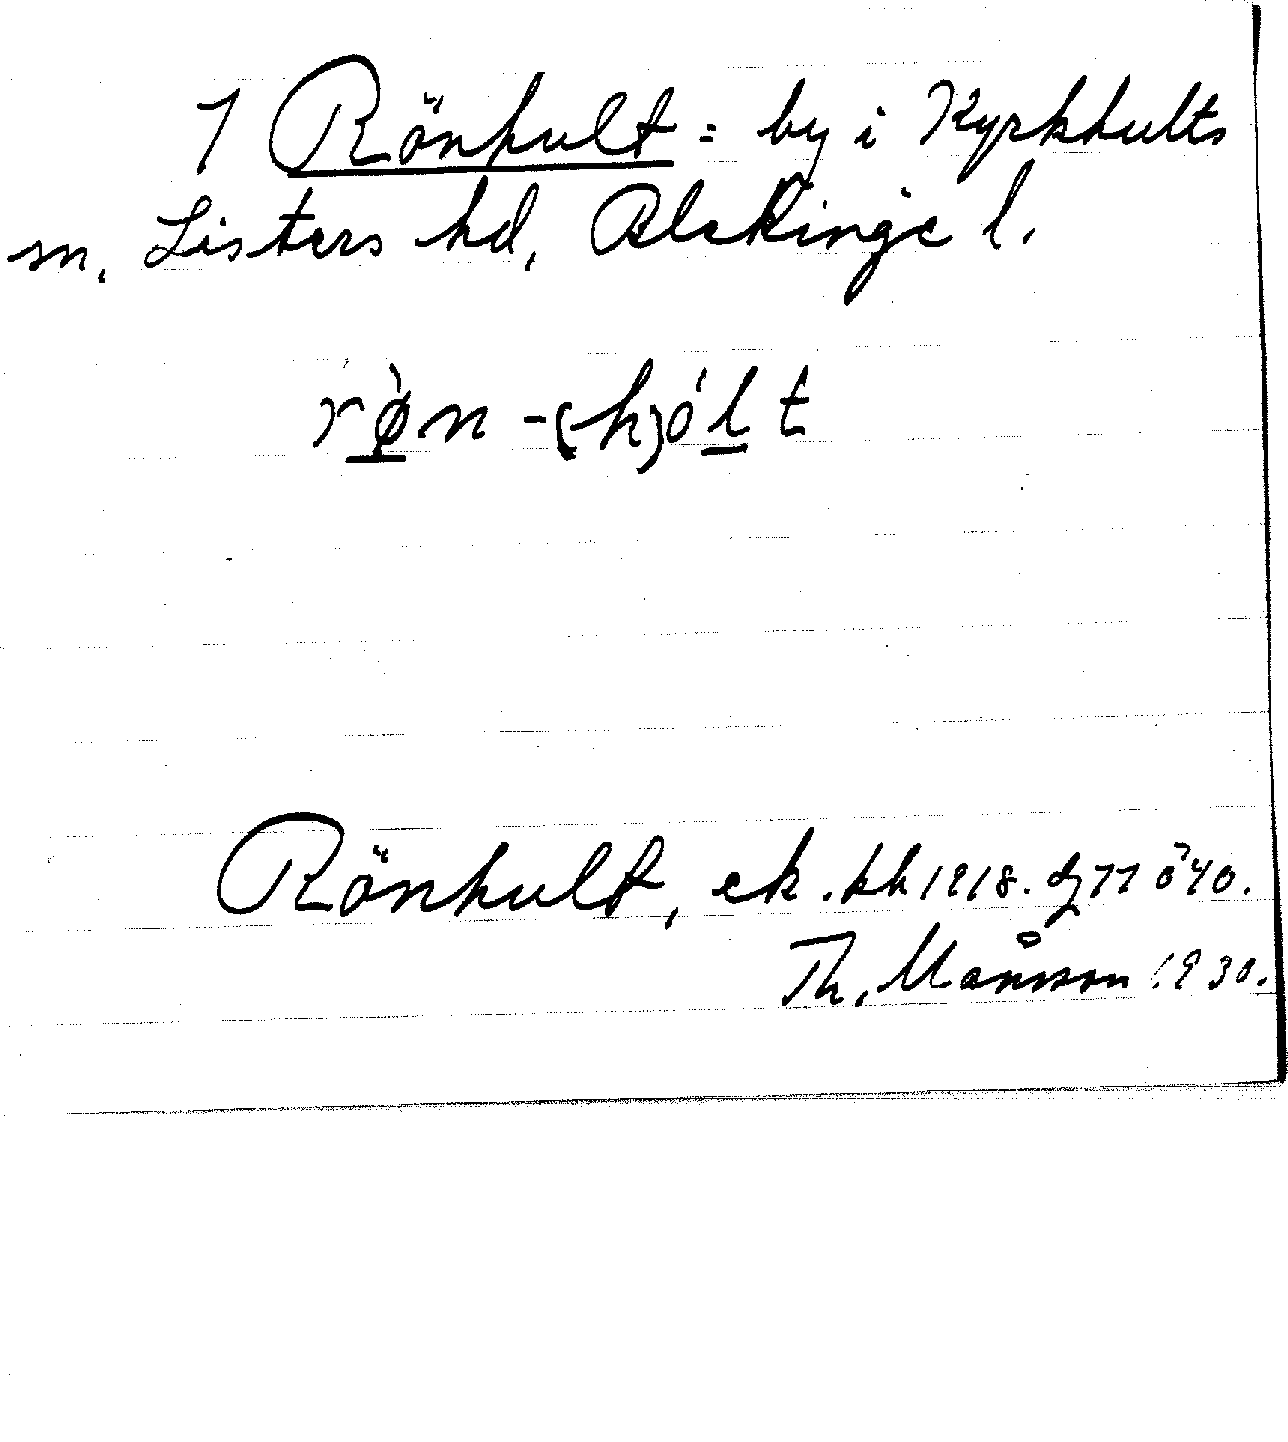 1 Rönhult = by i Kyrkhults
sn. Listers hd, Blekinge l.
rø̀n -(h)ólt
Rönhult, ek. kk 1918. 77 ö40.
Th. Månsson 1930.